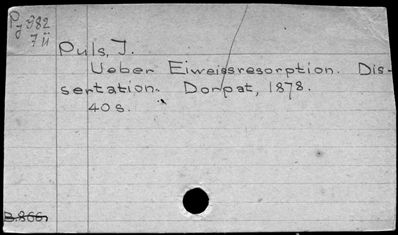 P
J 382
7 ü
Puls, J.
Ueber Eiweissresorption. Dis-
sertation. Dorpat, 1878.
40 s.
B.866.